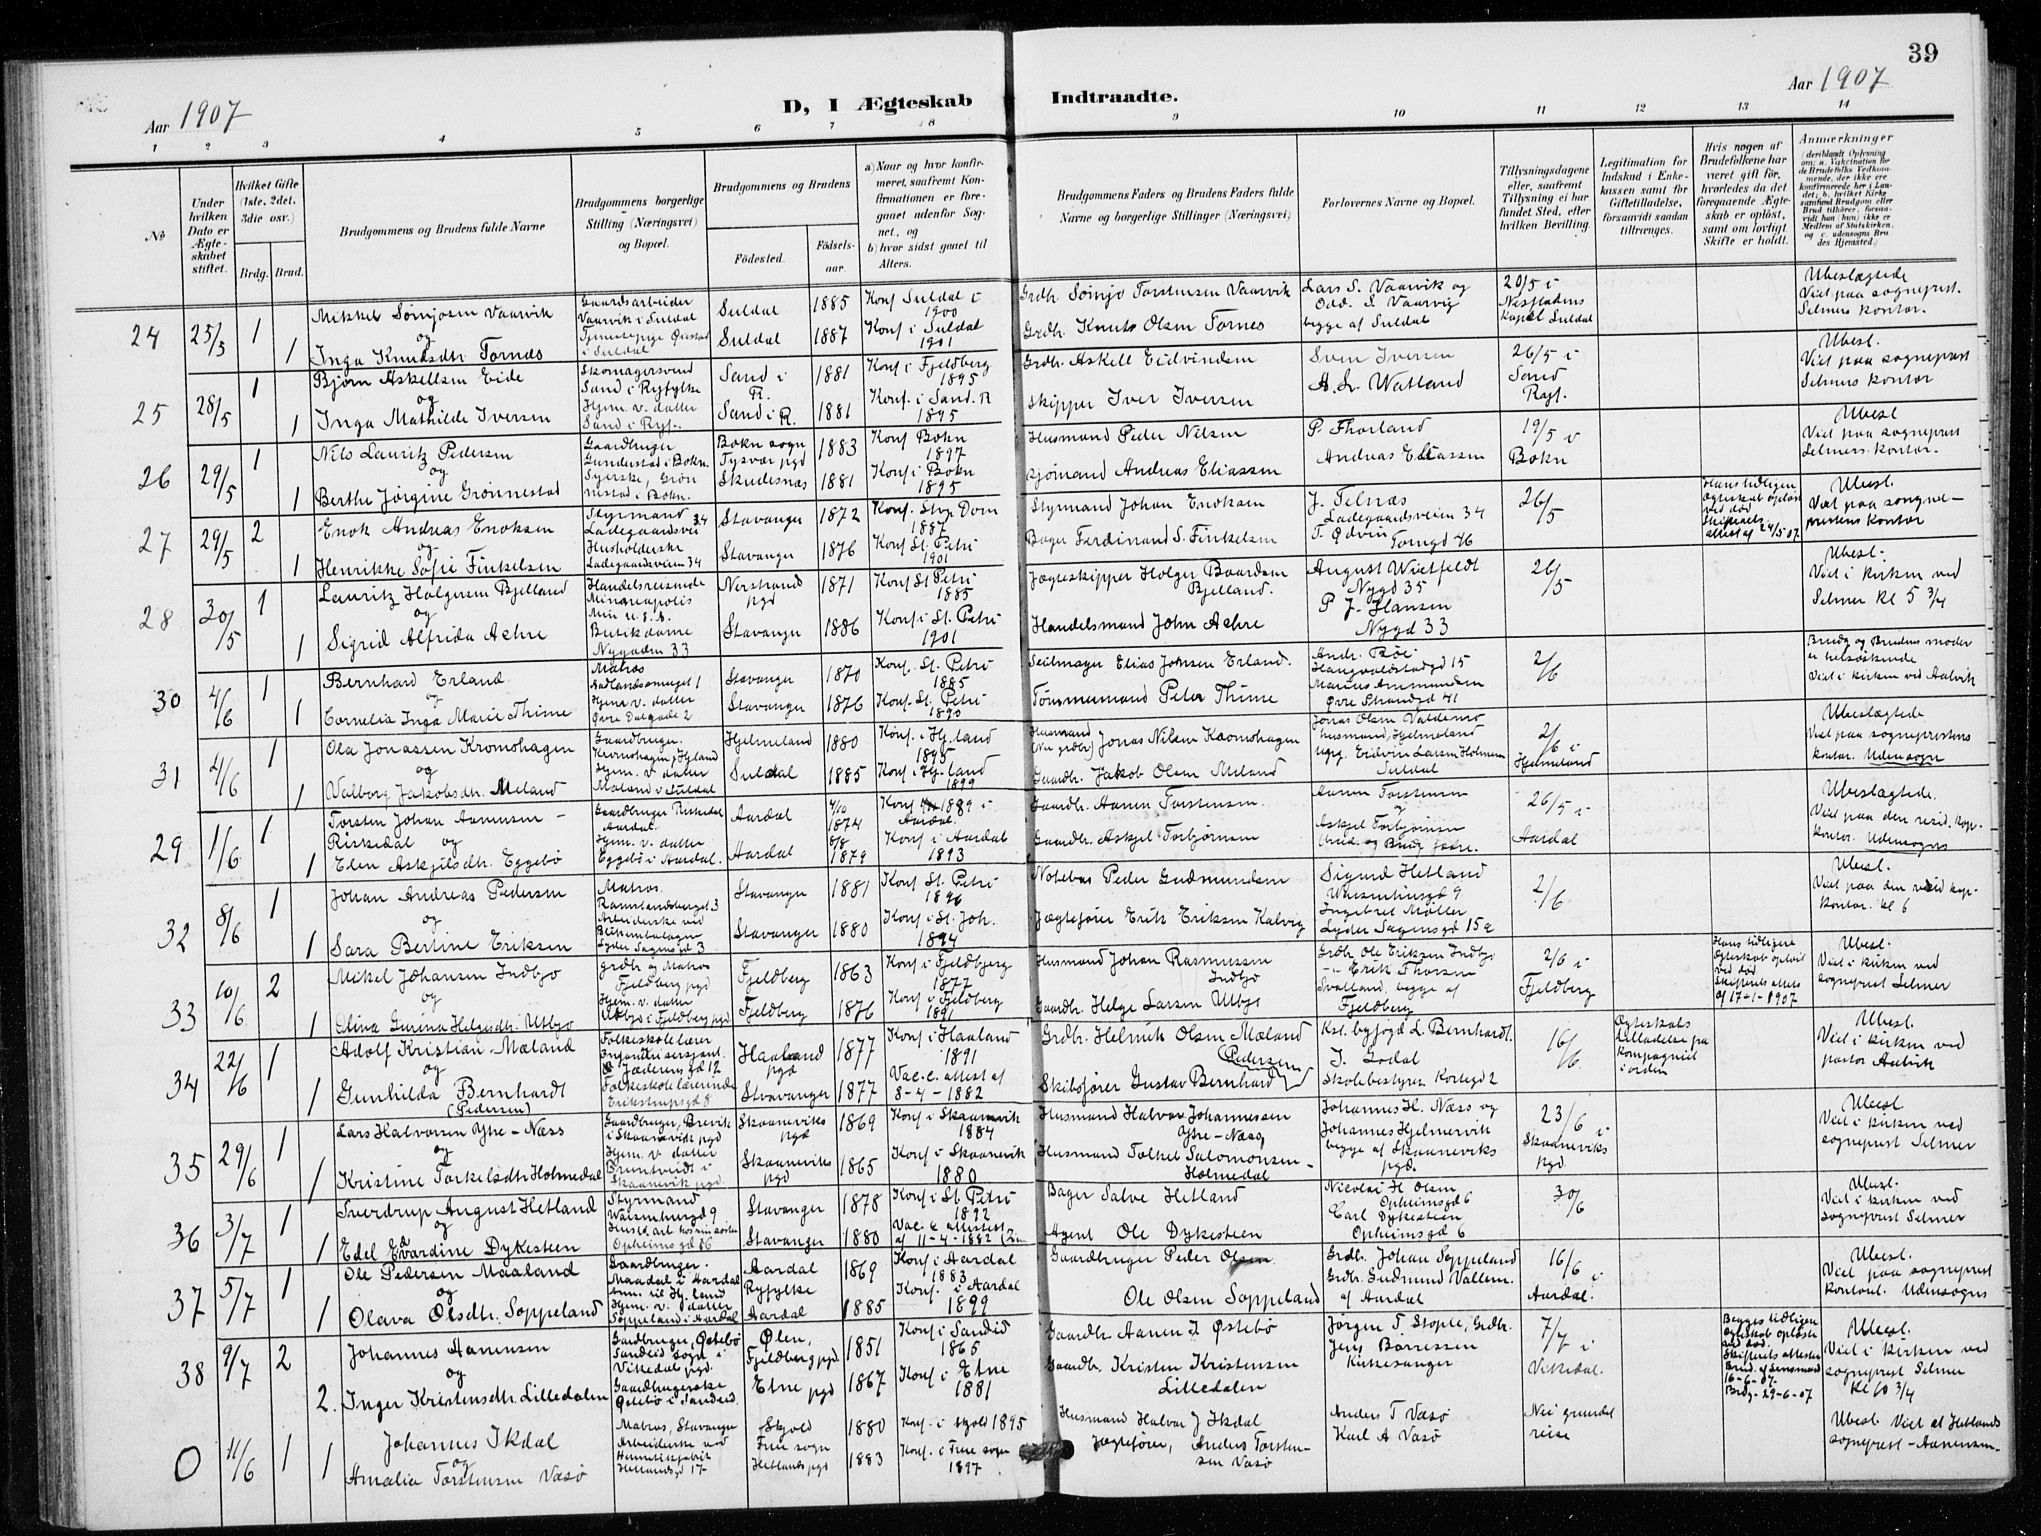 39
Aar 1907
D, I Ægteskab Indtraadte.
Aar 1907
1 2 3 4 5 6 7 8 9 10 11 12 13 14
No
Under hvilken Dato er Ægteskabet stiftet.
Hvilket Gifte (1ste, 2det, 3die osv.)
Brdg. Brud.
Brudgommens og Brudens fulde Navne
Brudgommens borgerlige Stilling (Næringsvei) og Bopæl.
Brudgommens og Brudens
Födested. Födselsaar
a) Naar og hvor konfirmeret, saafremt Konfirmationen er foregaaet udenfor Sognet, og
b) hvor sidst gaaet til Alters.
Brudgommens Faders og Brudens Faders fulde Navne og borgerlige Stillinger (Næringsvei)
Forlovernes Navne og Bopæl.
Tillysningsdagene eller, saafremt Tillysning ei har fundet Sted, efter hvilken Bevilling.
Legitimation for Indskud i Enkekassen samt for Giftetilladelse, forsaavidt saadan tiltrænges.
Hvis nogen af Brudefolkene har været gift för, hvorledes da det foregaaende Ægteskab er oplöst, samt om lovligt Skifte er holdt.
Anmærkninger
24 25/5 1 Mikkel Sømjosen Vaarvik Gaardsarbeider Vaarvik i Suldal Suldal 1885 Konf Suldal i 1900 Grdbr. Sømjo Torstensen Vaarvik Lars S. Vaarvik og Odd. S. Vaarvig begge af Suldal 20/5 i Kapel Suldal Ubeslægtede Viet paa sogneprest. Selmers kontor.
og
1 Inga Knudsdtr Tornes Tjenestepige i Suldal Suldal 1887 Konf i Suldal 1901 Grdbr. Knut Olsen Tornes
25 28/5 1 Bjørn Askellsen Eide Skomagersvend Sand i Ryfylke Sand i R. 1881 Konf i Fjeldberg 1895 Grdbr. Askell Eidvindsen Sven Iversen A. L. Watland 26/5 i Sand Ryf. Ubesl. Viet paa sogneprest Selmers kontor
og
1 Inga Mathilde Iversen Hjem. v. datter Sand i Ryf. Sand i R. 1881 Konf. i Sand. R 1895 Skipper Iver Iversen
26 29/5 1 Nils Lauritz Pedersen Gaardbruger Gunderstad i Bokn. Bokn sogn Tysvær pgd 1883 Konf Bokn 1897 Husmand Peder Nilsen P. Thorland Andreas Eliassen 19/5 i Bokn Ubesl Viet paa sogneprest Selmers kontor.
og
1 Berthe Jørgine Grønnestad Syerske, Grønnestad i Bokn. Skudesnæs 1881 Konf i Bokn 1895 Sjømand Andreas Eliassen
27 29/5 2 Enok Andreas Enoksen Styrmand Ladegaardsvei 34 Stavanger 1872 Konf. Stvg Dom 1887 Styrmand Johan Enoksen J. Telnæs Ladegaardsveien 34 26/5 Hans tidligere Ægteskab opløst ved død Skifteretsattest af 24/5 07. Ubesl. Viet paa sogneprestens kontor
og
1 Henrikke Sofie Finkelsen Husholderske Ladegaardsveien 34 Stavanger 1876 Konf St. Petri 1901 Bager Ferdinand S. Finkelsen T. Ødven Torngd 46
28 30/5 1 Lauritz Holgersen Bjelland Handelsreisende Mineapolis Min U.S.A. Nerstrand pgd 1871 Konf St Petri 1885 Jægteskipper Holger Baardsen Bjelland. August Wietfeldt Nygd 35 26/5 Ubesl. Viet i kirken ved Selmer Kl 5 3/4
og
1 Sigrid Alfrida Achre Butikdame Nygaden 33 Stavanger 1886 Konf i St. Petri 1901 Handelsmand John Achre P. J. Hansen Nygd 33
30 4/6 1 Bernhard Erland Matros Stavanger 1870 Konf. St. Petri 1885 Seilmager Elias Johnsen Erland. Andr. Bøe Haugvaldstadgd 15 2/6 Brudg og Brudens moder er helsøskende Viet i kirken ved Aalvik
og
1 Cornelia Inga Marie Thime Hjem v. datter Øvre Dalgade 2 Stavanger 1876 Konf. St. Petri 1890 Tømmermand Peter Thime Marius Ammundsen Øvre Strandgd 41
31 4/6 1 Ola Jonassen Kromshagen Gaardbruger. Hjelmeland 1880 Konf. i Hj.land 1895 Husmand (Nu grdbr) Jonas Nilsen Kromshagen Jonas Olsen Valdemo husmand, Hjelmeland 2/6 i Hjelmeland Ubeslægtede Viet paa sogneprestens kontor. Udensogn
og
1 Valborg Jakobsdtr. Meland Hjem. v. datter Meland i Suldal Suldal 1885 Konf i Hj.land 1899 Gaardbr. Jakob Olsen Meland Eidvin Larsen Holmen Suldal
29 1/6 1 Torsten Johan Aanensen Riskedal Gaardbruger Riskedal Aardal. Aardal 4/10 1874 Konf 1889 i Aardal Gaardbr. Aanen Torstensen. Aanen Torstensen 26/5 i Aardal Ubeslægtede. Viet paa den resid. kap. kontor. Udensogns
og
1 Elen Askjelsdtr. Eggebø Hjem. v. datter Eggebø i Aardal. Aardal 8/8 1879 Konf i Aardal 1893 Gaardbr. Askjel Torbjørnsen Askjel Torbjørnsen
32 8/6 1 Johan Andreas Pedersen Matros. Stavanger 1881 Konf St. Petri 1896 Notebas Peder Gudmundsen Sigurd Hetland 2/6 Ubesl. Viet paa den resid kap. kontor. kl 6
og
1 Sara Bertine Eriksen Arbeiderske ved Lyder Sagensgd 3 Stavanger 1880 Konf i St. Joh. 1894 Jægtefører Erik Eriksen Kalvig Ingebret Møller Lyder Sagensgd 15a
33 10/6 2 Mikel Johansen Indbjo grdbr og Matros Fjeldberg pgd Fjeldberg 1863 Konf i Fjeldbjerg 1877 Husmand Johan Rasmussen Indbjo Grdbr Ole Eriksen Indbjo Erik Thorsen Svolland, begge af Fjeldberg 2/6 i Fjeldberg Hans tidligere Ægteskab opløst ved død Skifterets attest af 17-1-1907 Ubesl. Viet i kirken ved sogneprest Selmer
og
1 Olina Gurina Helgesdtr. Utbjo Hjem. v. datter Utbjo i Fjeldberg pgd Fjeldberg 1876 Konf i Fjeldberg 1891 Gaardbr. Helge Larsen Utbjo
34 22/6 1 Adolf Kristian Mæland Folkeskolelærer Underofficersgent. Jæderensgd 12 Haaland pgd 1877 Konf i Haaland 1891 Grdbr. Helmik Olsen Mæland Kst. byfogd L. Bernhardt. 16/6 Ægteskabstilladelse fra kompagniet i orden Ubesl. Viet i kirken ved pastor Aalvik
og
1 Gunhilda Bernhardt (Pedersen) Folkeskolelærerinde Erikstrupsgd 8 Stavanger 1877 Vac. c. attest af 8-4-1882 Skibsfører Gustav Bernhard Pedersen J. Godal Skolebestyrer Kortegd 2
35 29/6 1 Lars Halvorsen Ytre-Næss Gaardbruger, Brevik i Skaanevik pgd Skaaneviks pgd 1869 Konf i Skaanevik 1884 Husmand Halvor Johannessen Ytre-Næss, Johannes H. Næss og Johannes Hjelmervik begge af Skaaneviks pgd. 23/6 i Skaaneviks pgd Ubesl Viet i kirken ved sogneprest Selmer
og
1 Kristine Torkelsdtr Holmedal Hjem v. datter Skaanevik pgd. Skaaneviks pgd 1865 Konf i Skaanevik 1880 Husmand Tolkel Salomonsen Holmedal
36 3/7 1 Sverdrup August Hetland Styrmand Waisenhusgd 9 Stavanger 1878 Konf i St. Petri 1892 Bager Salve Hetland Nicolai H. Olsen Opheimsgd 6 30/6 Ubesl. Viet i kirken ved sogneprest Selmer
og
1 Edel Evardine Dykesteen Opheimsgd 6 Stavanger 1880 Vac. c. attest af 11-4-1882 Agent Ole Dykesteen Carl Dykesteen Opheimsgd 6
37 5/7 1 Ole Pedersen Maaland Gaardbruger. Maadal i Aardal Aardal Ryfylke 1869 Konf i Aardal 1883 Gaardbruger Peder Olsen Grdbr. Johan Soppeland Grdbr. Gudmund Vallem. af Aardal 16/6 i Aardal. Ubesl. Viet paa sogneprest kontoret. Udensogns
og
1 Olava Olsdtr. Soppeland Hjem. v. datter Soppeland i Aardal Aardal 1885 Konf. i Aardal 1899 Ole Olsen Soppeland
38 9/7 2 Johannes Aanensen Gaardbruger, Østebø Sandeid sogn i Vikedal pgd. Ølen, Fjeldberg pgd 1851 Konf i Sandeid 1865 Gaardbr. Aanen J. Østebø Jørgen T. Stople, Grdbr. 7/7 i Vikedal. Begges tidligere Ægteskab opløst ved død Skifterets attester Brud. af Lensmand 16-6-07. Brdg- 29-6-07 Ubesl. Viet i kirken ved sogneprest Selmer Kl 10 3/4
og
2. Inger Kristensdtr. Lilledalen Gaardbrugerske Østebø i Sandeid. Etne pgd 1867 Konf i Etne 1881 Gaardbr. Kristen Kristensen Lilledalen Jens Børressen Kirkesanger
0 11/6 1 Johannes Ikdal Matros, Stavanger Skjold 1880 Konf. i Skjold 1895 Husmand Halvor J Ikdal Anders T Vasø Nei grundet reise Ubesl. Viet af Hetlands sogneprest-Aanensen
og
1 Amalia Torstensen Vasø Arbeiderske ved Hermetikfabrik Hetlandsgd 17 Frue sogn Hetlands pgd 1883 Konf. i Frue sogn 1897 Jægtefører, Anders Torstensen Vasø Karl A Vasø